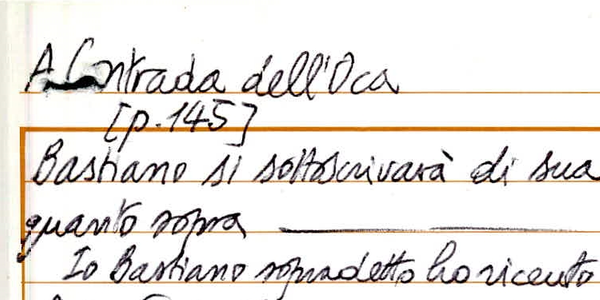 A Contrada dell'Oca
[p. 145]
Bastiano si sottoscrivarà di sua
quanto sopra
Io Bastiano sopradetto ho ricento